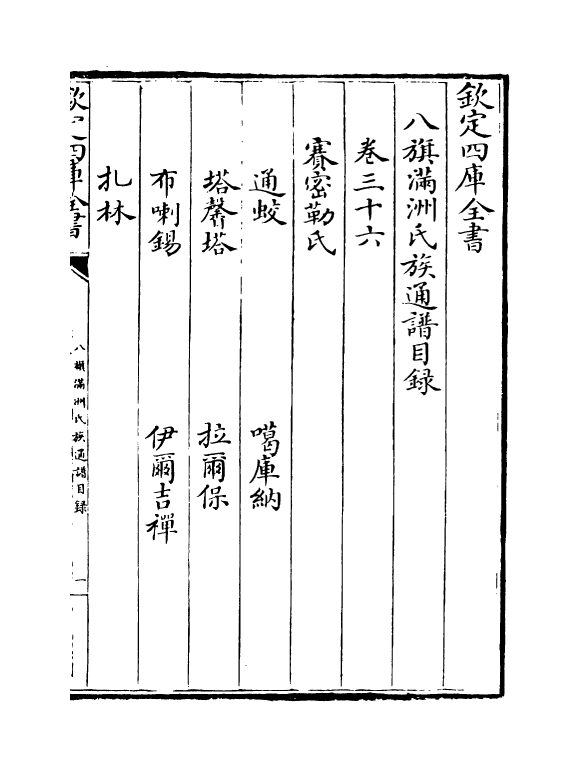 欽定四庫全書
八旗滿洲氏族通譜目録
卷三十六
賽密勒氏
通蛟 噶庫納
塔馨塔 拉爾保
布喇錫 伊爾吉禪
扎林
欽定四庫全書
八旗滿洲氏族通譜目録
一